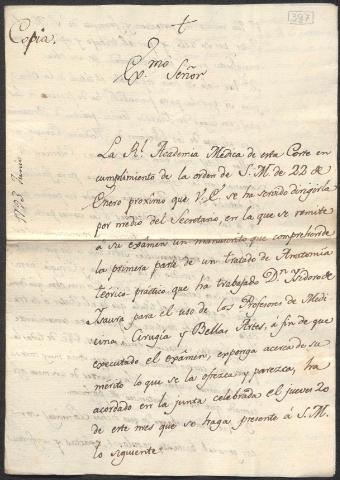 387
+
Copia.
Ex.mo Señor
La Rl. Academia Médica de esta Corte en
cumplimiento de la orden de S. M. de 22 de
Enero proximo que V. E. se ha servido dirigirla
por medio del Secretario, en la que se remite
a su examen un manuscrito que comprehende
la primera parte de un tratado de Anatomía
teorico-practico que ha trabajado Dn. Isidoro de
Isaura para el uso de los Profesores de Medi
cina, Cirugía y Bellas Artes, a fin de que
executado el exâmen, exponga acerca de su
mérito lo que se la ofrezca y parezca, ha
acordado en la junta celebrada el jueves 20
de este mes que se haga presente á S. M.
lo siguiente